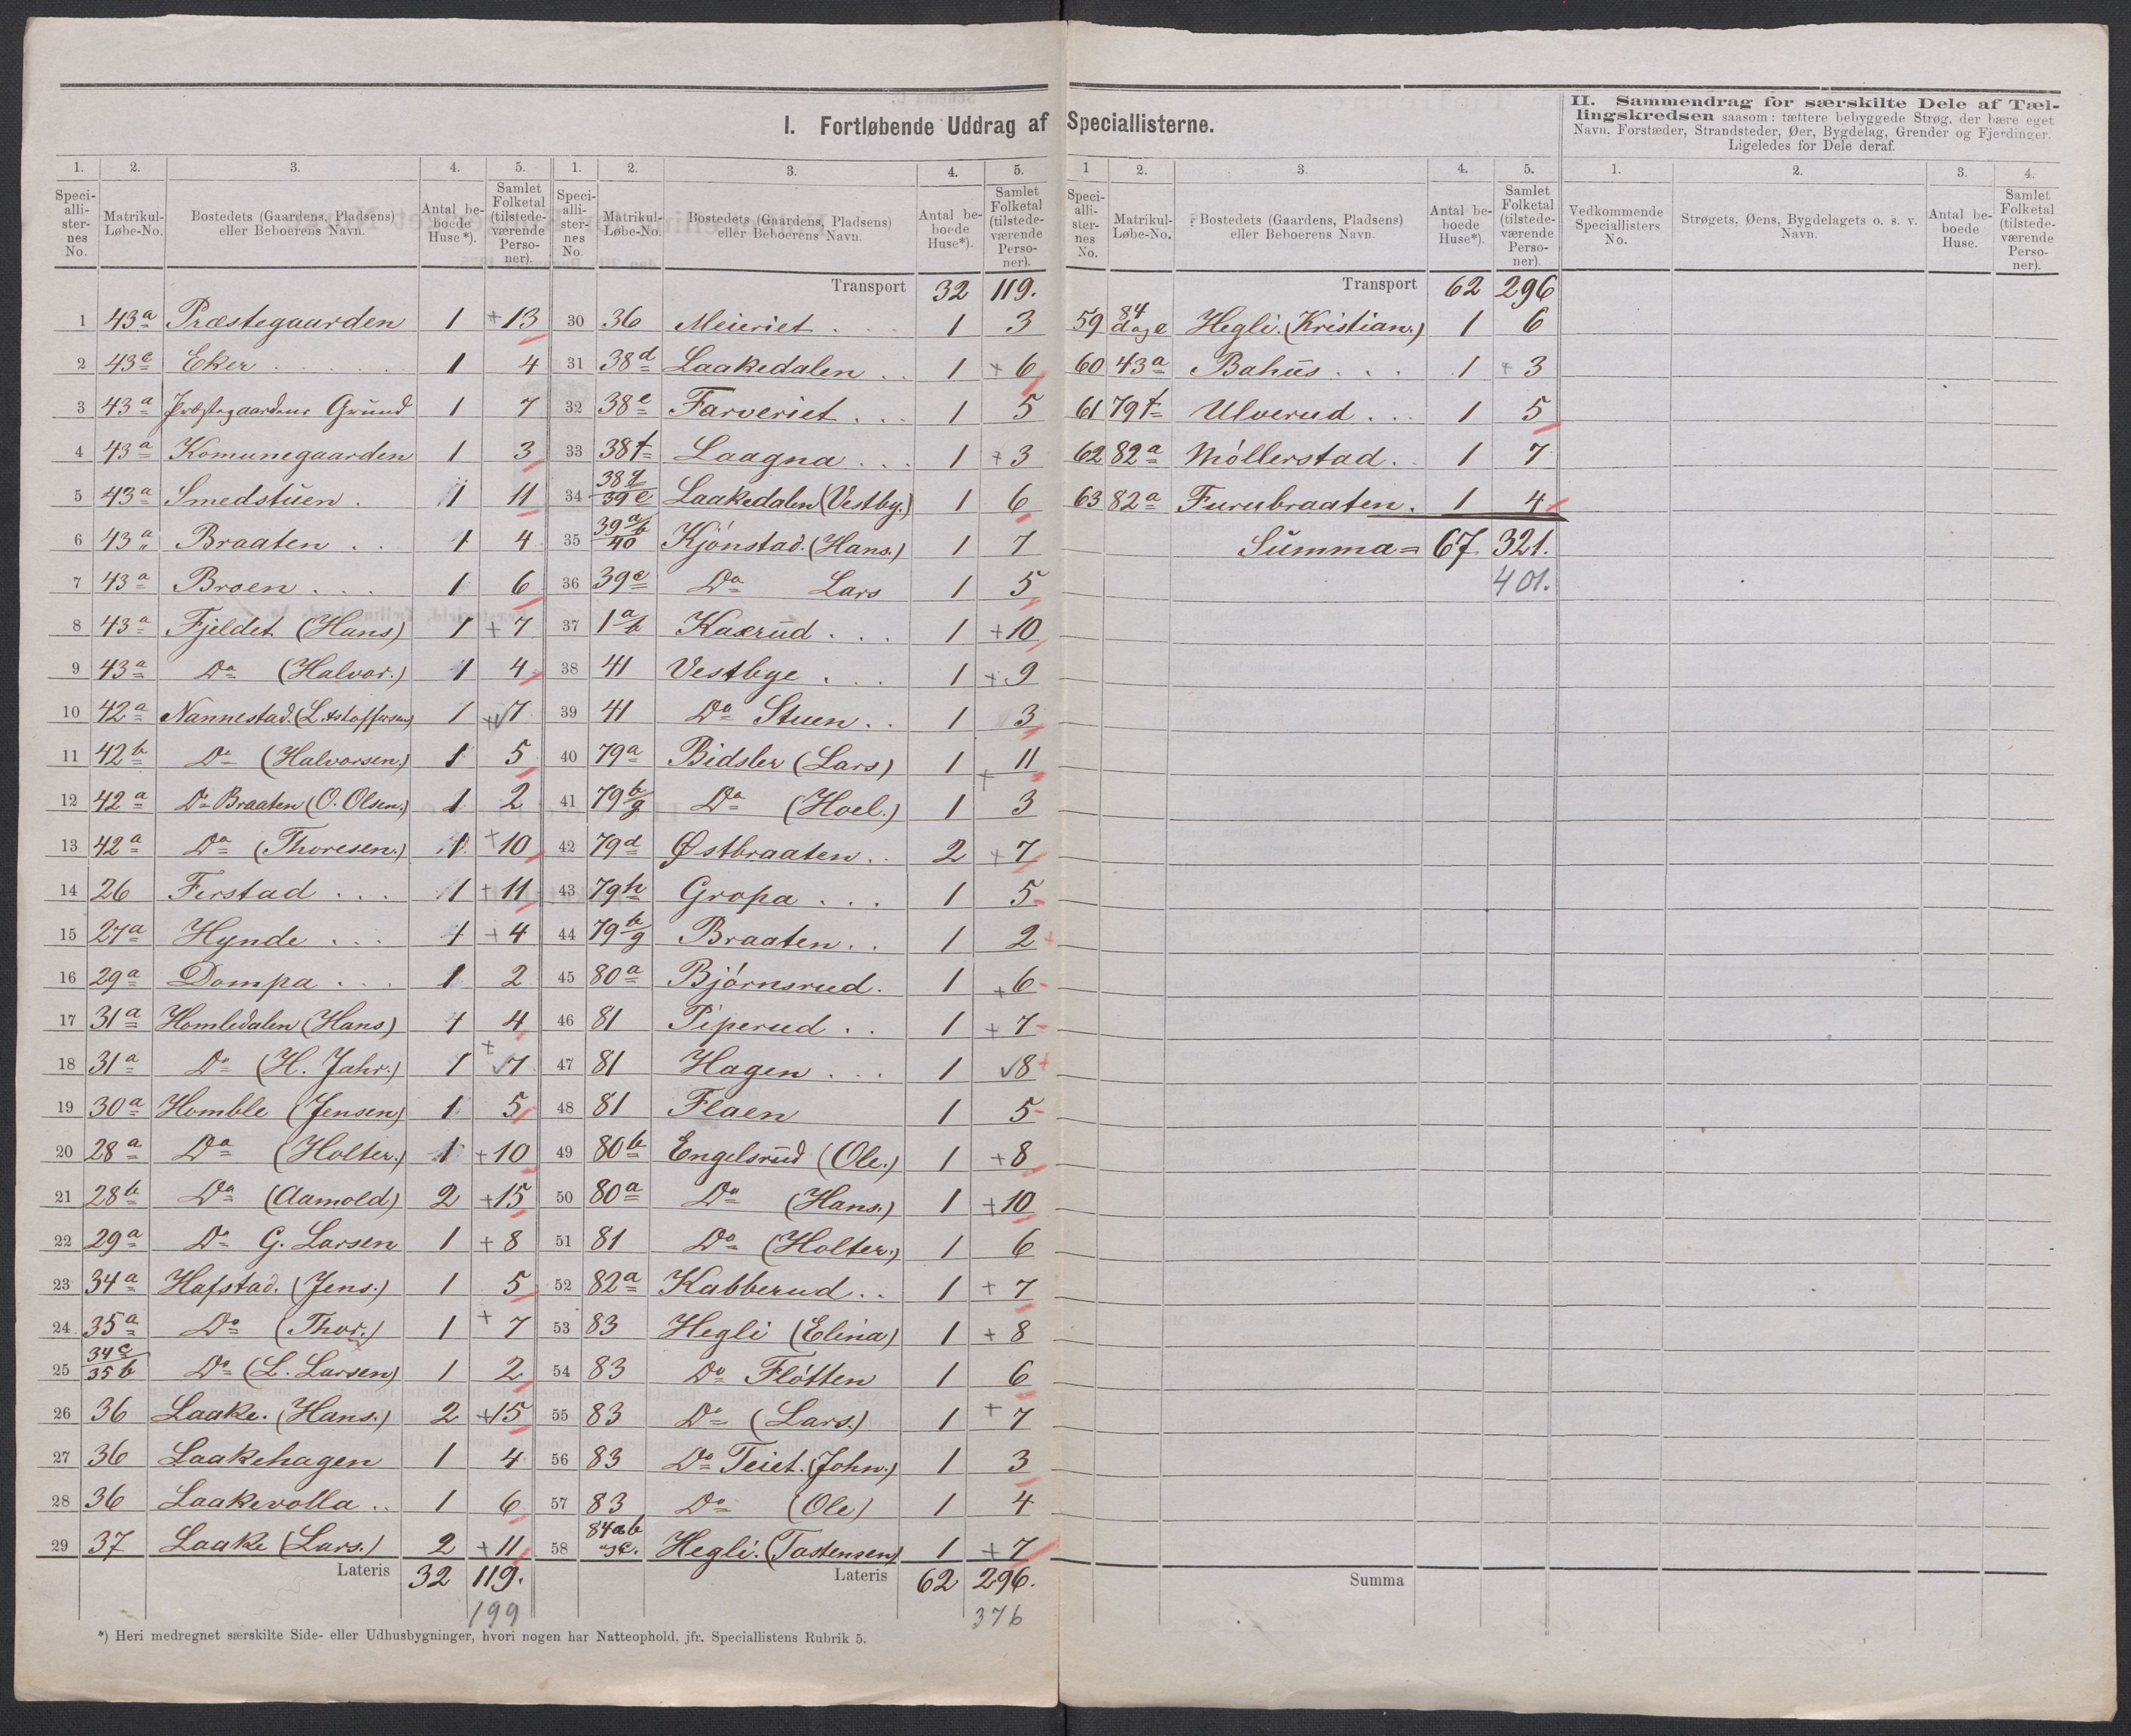 I. Fortløbende Uddrag af Speciallisterne.
1. 2. 3. 4. 5.
Speciallisternes No. Matrikul-Løbe-No. Bostedets (Gaardens, Pladsens) eller Beboerens Navn. Antal beboede Huse*). Samlet Folketal (tilstedeværende Personer).
1 43a Præstegaarden 1 + 13
2 43c Eker . . . 1 4
3 43a Præstegaardens Grund 1 7
4 43a Komunegaarden 1 3
5 43a Smedstuen . 1 11
6 43a Braaten . . 1 4
7 43a Broen . . . 1 6
8 43a Fjeldet (Hans) 1 + 7
9 43a Do (Halvor.) 1 4
10 42a Nannestad. (L. Astoffersen) 1 + 7
11 42b Do (Halvorsen.) 1 5
12 42a Do Braaten (O. Olsen.) 1 2
13 42a Do (Thoresen.) 1 + 10
14 26 Ferstad . . . 1 + 11
15 27a Hynde . . . 1 + 4
16 29a Dompa . . . 1 2
17 31a Homledalen (Hans) 1 4
18 31a Do (H. Jahr.) 1 + 7
19 30a Homble (Jensen) 1 5
20 28a Do (Holter.) 1 + 10
21 28b Do (Aamold) 2 + 15
22 29a Do G. Larsen 1 + 8
23 34a Hafstad. (Jens.) 1 5
24 35a Do (Thor.) 1 + 7
25 34c/35b Do (L. Larsen) 1 2
26 36 Laake. (Hans.) 2 + 15
27 36 Laakehagen 1 4
28 36 Laakevolla . . 1 6
29 37 Laake (Lars.) 2 + 11
Lateris 32 119.
199
1. 2. 3. 4. 5.
Speciallisternes No. Matrikul-Løbe-No. Bostedets (Gaardens, Pladsens) eller Beboerens Navn. Antal beboede Huse*). Samlet Folketal (tilstedeværende Personer).
Transport 32 119.
30 36 Meieriet . . . 1 3
31 38d Laakedalen . . 1 + 6
32 38e Farveriet . . . 1 5
33 38f Laagna . . . 1 + 3
34 38g/39c Laakedalen (Vestby.) 1 6
35 39a b/40 Kjønstad. (Hans.) 1 7
36 39c Do Lars 1 5
37 1a b Kaxrud . . . 1 + 10
38 41 Vestbye . . . 1 + 9
39 41 Do Stuen . . 1 3
40 79a Bidsler (Lars) 1 + 11
41 79b g Do (Hoel.) 1 3
42 79d Østbraaten . . 2 + 7
43 79h Gropa . . . 1 5
44 79b g Braaten . . 1 2
45 80a Bjørnsrud. 1 + 6
46 81 Piperud . . 1 + 7
47 81 Hagen . . . 1 8
48 81 Flaen 1 5
49 80b Engelsrud (Ole.) 1 + 8
50 80a Do (Hans.) 1 + 10
51 81 Do (Holter.) 1 6
52 82a Kabberud . . 1 + 7
53 83 Hegli (Elina) 1 + 8
54 83 Do Fløtten 1 6
55 83 Do (Lars.) 1 + 7
56 83 Do Teiet. (John.) 1 3
57 83 Do (Ole) 1 4
58 84ab og c. Hegli. (Tostensen) 1 + 7
Lateris 62 296.
376
1 2. 3. 4. 5.
Speciallisternes No. Matrikul-Løbe-No. Bostedets (Gaardens, Pladsens) eller Beboerens Navn. Antal beboede Huse*). Samlet Folketal (tilstedeværende Personer).
Transport 62 296
59 84 d og e Hegli. (Kristian.) 1 6
60 43a Bahus . . . 1 + 3
61 79f Ulverud . . . 1 5
62 82a Møllerstad . . 1 7
63 82a Furubraaten . 1 4
Summa = 67 321.
401.
Summa
II. Sammendrag for særskilte Dele af Tællingskredsen saasom: tættere bebyggede Strøg, der bære eget
Navn, Forstæder, Strandsteder, Øer, Bygdelag, Grender og Fjerdinger.
Ligeledes for Dele deraf.
1. 2. 3. 4.
Vedkommende Speciallisters No. Strøgets, Øens, Bygdelagets o. s. v. Navn. Antal beboede Huse. Samlet Folketal (tilstedeværende Personer).
*) Heri medregnet særskilte Side- eller Udhusbygninger, hvori nogen har Natteophold, jfr. Speciallistens Rubrik 5.